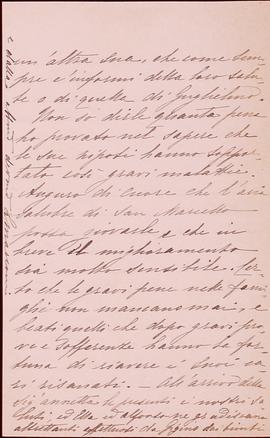 un'altra sua, che come sem
pre c'informi della loro salu
te e di quella di Guglielmo.
Non so dirle quanta pena
ho provato nel sapere che
le sue nipoti hanno soppor
tato così gravi malattie.
Auguro di cuore che l'aria
salubre di San Marcello
possa giovarle e che in
breve il miglioramento
sia molto sensibile. Cer
to che le gravi pene nelle fami
glie non mancano mai, e
beati quelli che dopo gravi pro
ve e sofferenze hanno la for
tuna di riavere i suoi ca
ri risanati. — All'arrivo della
Sig. Annetta le
ed Ella ed Alfonso ne gradiscano